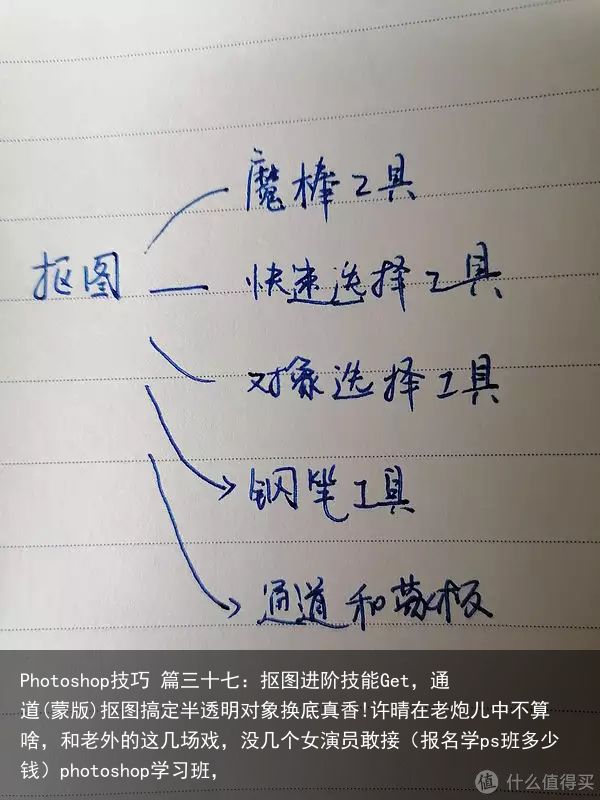 魔棒工具
抠图
快速选择工具
对象选择工具
钢笔工具
通道和蒙板
Photoshop技巧 篇三十七：抠图进阶技能Get，通
道(蒙版)抠图搞定半透明对象换底真香!许晴在老炮儿中不算
啥，和老外的这几场戏，没几个女演员敢接（报名学ps班多少
钱）photoshop学习班，
值 什么值得买